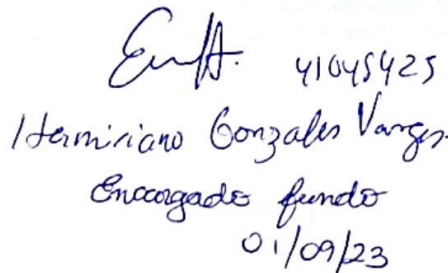 41045425
Herminiano Gonzales Vargas
Encargado fundo
01/09/23